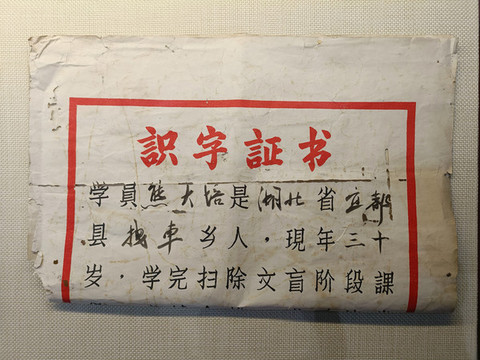 識字証书
学員熊大浩是湖北省宜都
县松車乡人，現年三十
岁，学完扫除文盲阶段課